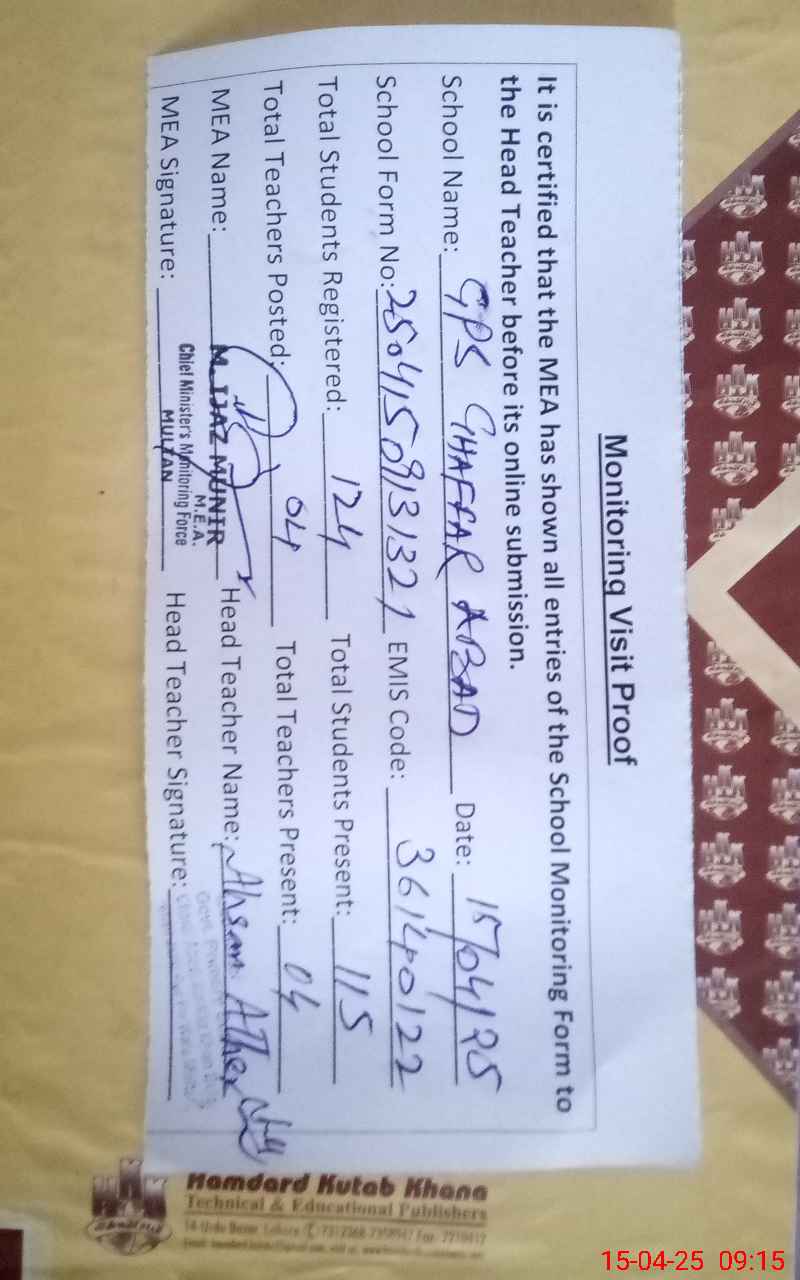 Monitoring Visit Proof
It is certified that the MEA has shown all entries of the School Monitoring Form to
the Head Teacher before its online submission.
School Name: GPS GHAFFAR ABAD Date: 15/04/25
School Form No: EMIS Code: 36140122
Total Students Registered: 124 Total Students Present: 115
Total Teachers Posted: 04 Total Teachers Present: 04
MEA Name: M. IJAZ MUNIR Head Teacher Name: Ahsan Ather
M.E.A.
Chief Minister's Monitoring Force
MULTAN
MEA Signature: Head Teacher Signature:
Hamdard Kutab Khana
Technical & Educational Publishers
15-04-25 09:15